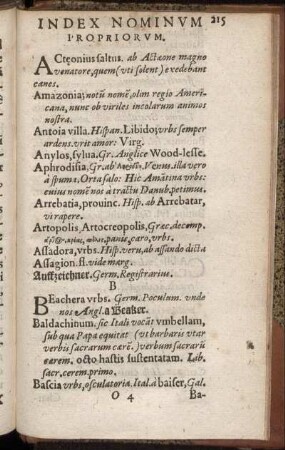 INDEX NOMINVM 215
PROPRIORVM.
ACtęonius saltus. ab Actæone magno
venatore, quem (vti solent) exedebant
canes.
Amazonia; notũ nomẽ, olim regio Ameri-
cana, nunc ob viriles incolarum animos
nostra.
Antoia villa. Hispan. Libido; vrbs semper
ardens. vrit amor: Virg.
Anylos, sylua. Gr. Anglice Wood-lesse.
Aphrodisia, Gr. ab Venus. illa vero
à spuma. Orta salo: Hic Amãtina vrbs:
cuius nomẽ nos à tractu Danub. petimus.
Arrebatia, prouinc. Hisp. ab Arrebatar,
vi rapere.
Artopolis, Artocreopolis, Græc. decomp.
panis, caro, vrbs.
Assadora, vrbs. Hisp. veru, ab assando dicta
Assagion. fl. vide marg.
Auffzeichner. Germ. Registrarius.
B
BEachera vrbs. Germ. Poculum. vnde
nos Angl. a Beaker.
Baldachinum. sic Itali vocãt vmbellam,
sub qua Papa equitat (vt barbaris vtar
verbis sacrarum carẽ.) verbum sacrarũ
carem. octo hastis sustentatam. Lib.
sacr. cerem. primo.
Bascia vrbs, osculatoria. Ital. à baiser, Gal.
O 4 Ba-